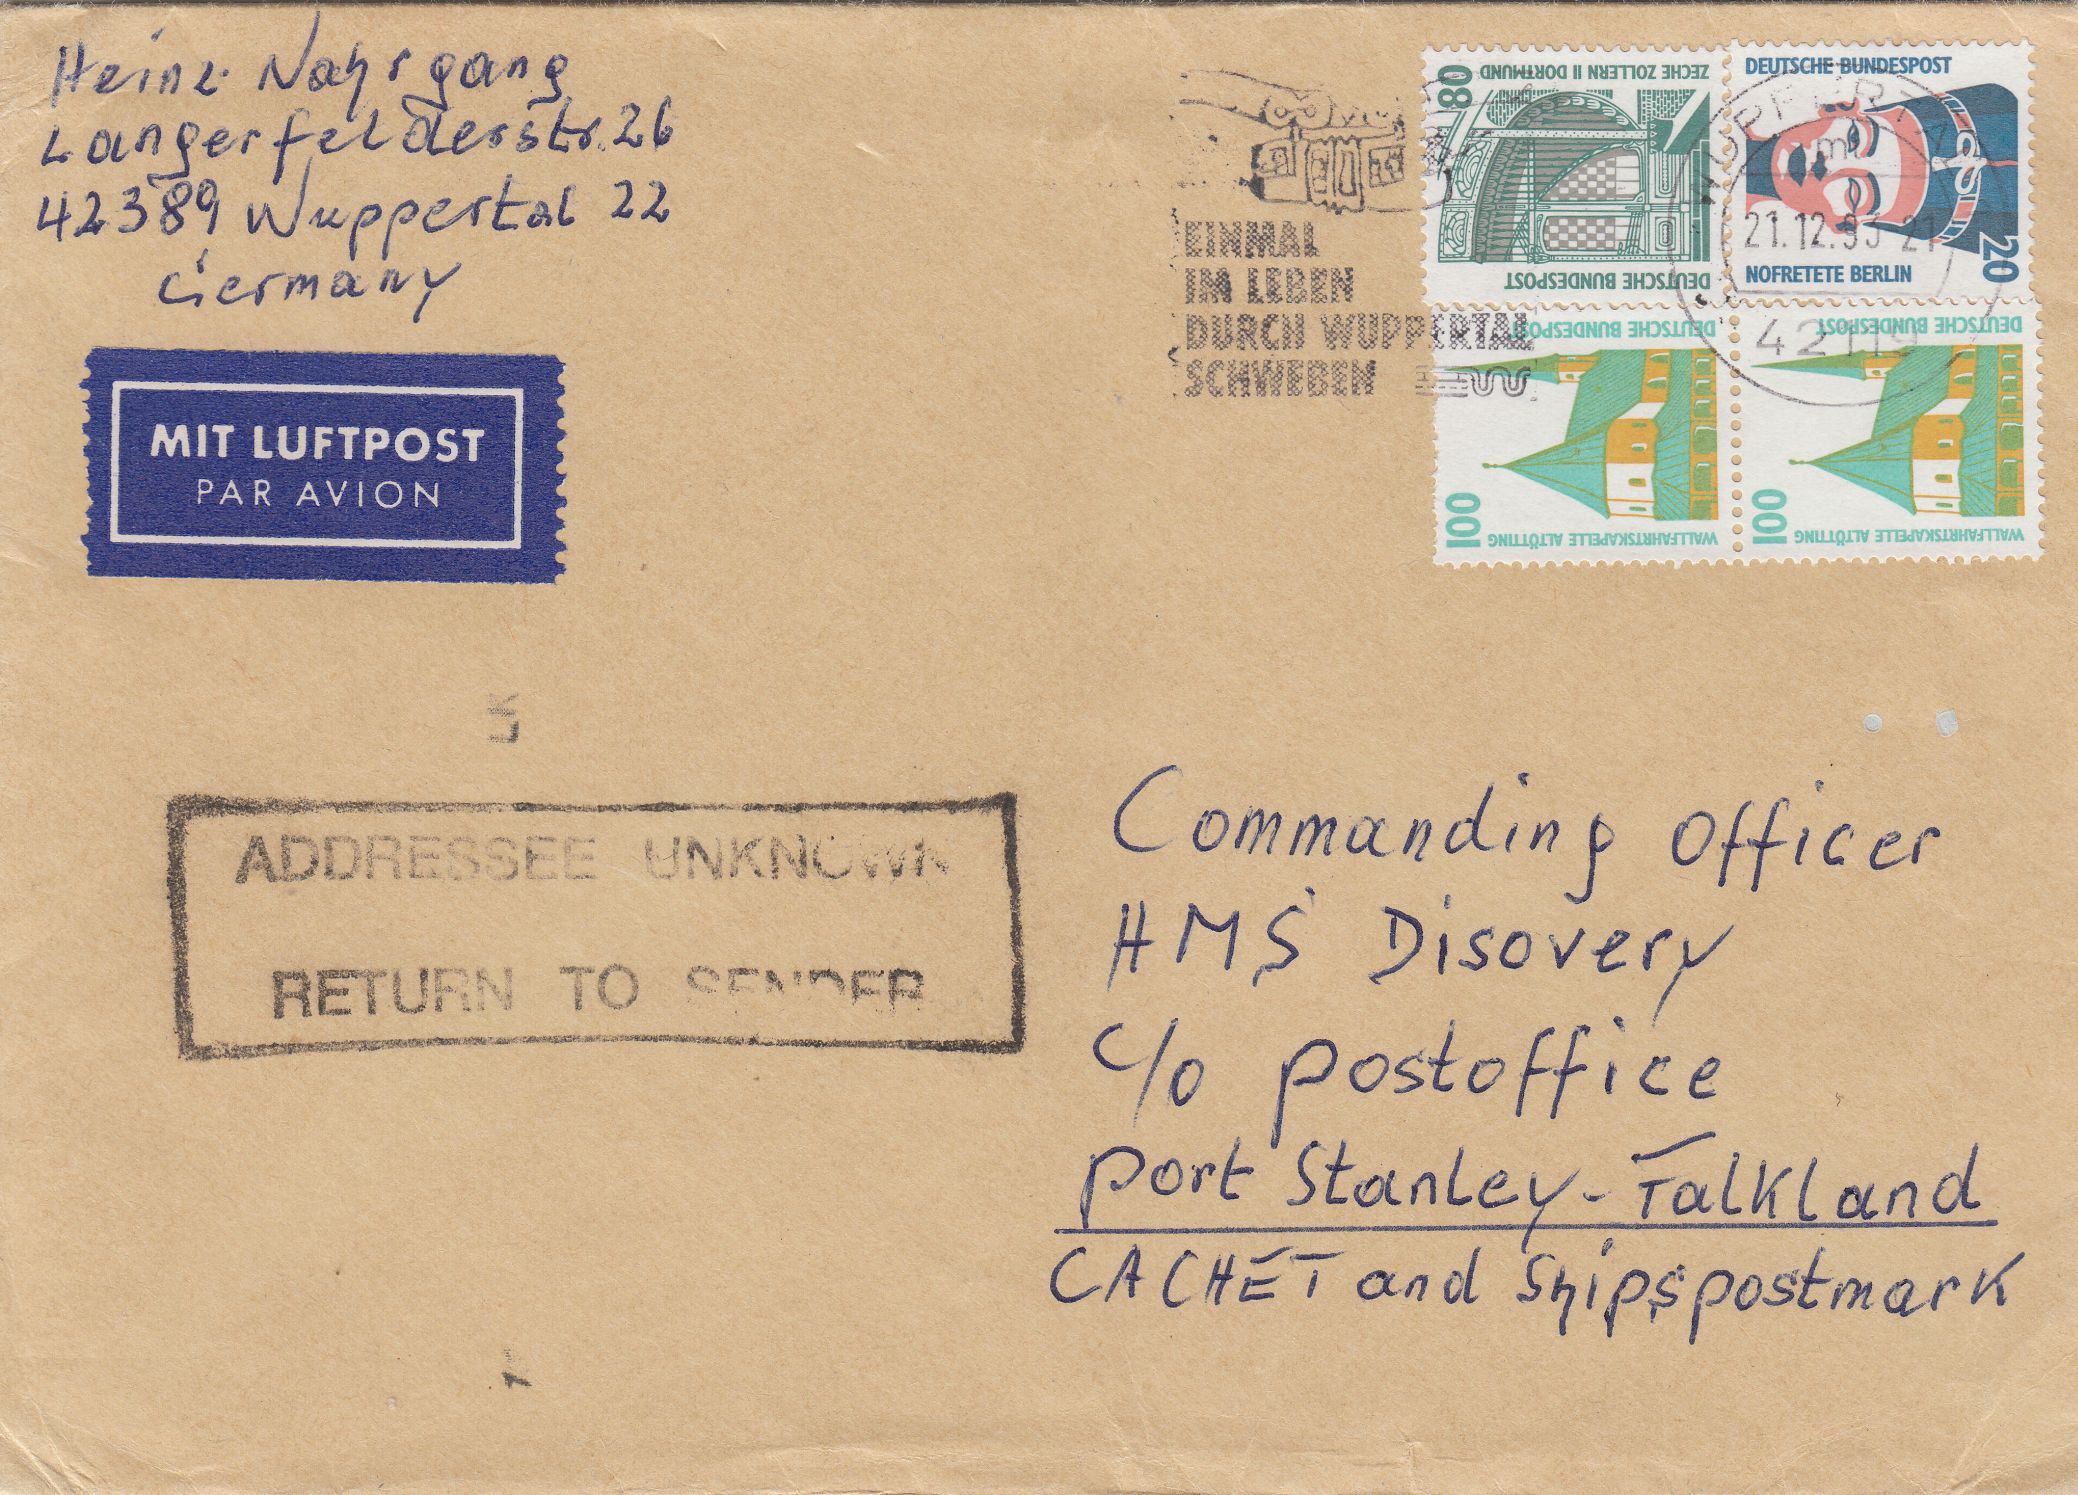 Heinz Nahrgang
Langerfelderstr. 26
42389 Wuppertal 22
Germany
MIT LUFTPOST
PAR AVION
EINMAL
IM LEBEN
DURCH WUPPERTAL
SCHWEBEN
80
ZECHE ZOLLERN II DORTMUND
DEUTSCHE BUNDESPOST
DEUTSCHE BUNDESPOST
NOFRETETE BERLIN
20
WUPPERTAL
21.12.93-21
42119
DEUTSCHE BUNDESPOST
100
WALLFAHRTSKAPELLE ALTÖTTING
DEUTSCHE BUNDESPOST
100
WALLFAHRTSKAPELLE ALTÖTTING
ADDRESSEE UNKNOWN
RETURN TO SENDER
Commanding Officer
HMS Disovery
c/o postoffice
Port Stanley-Falkland
CACHET and Shipspostmark